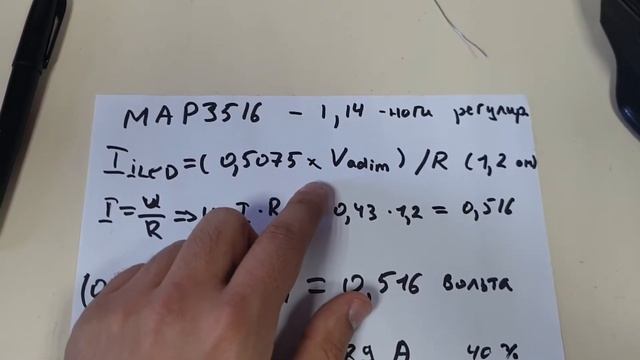 MAP3516 - 1,14 - ноги регулир
I iLED = ( 0,5075 x Vadim ) / R ( 1,2 ом
I = u/R => I · R 0,43 · 1,2 = 0,516
(0 = 0,516 вольта
А 40 %